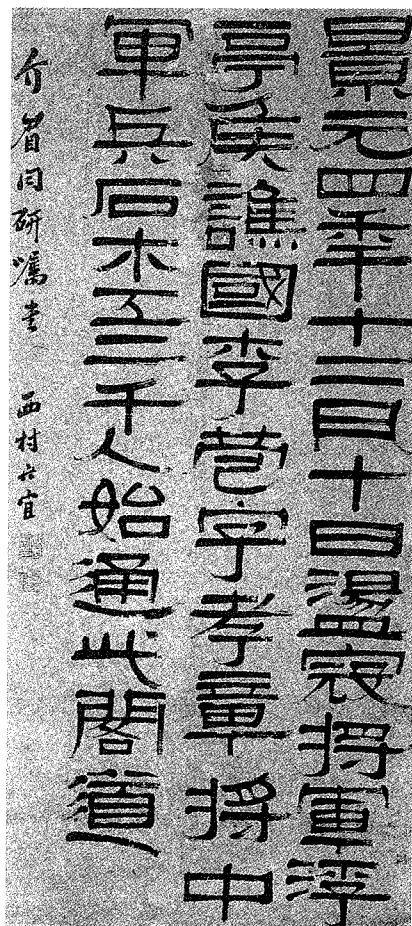 景元四年十二月十日盪寇將軍浮
亭侯譙國李苞字孝章將中
軍兵石木工二千人始通此閣道
介眉同研囑書 西村